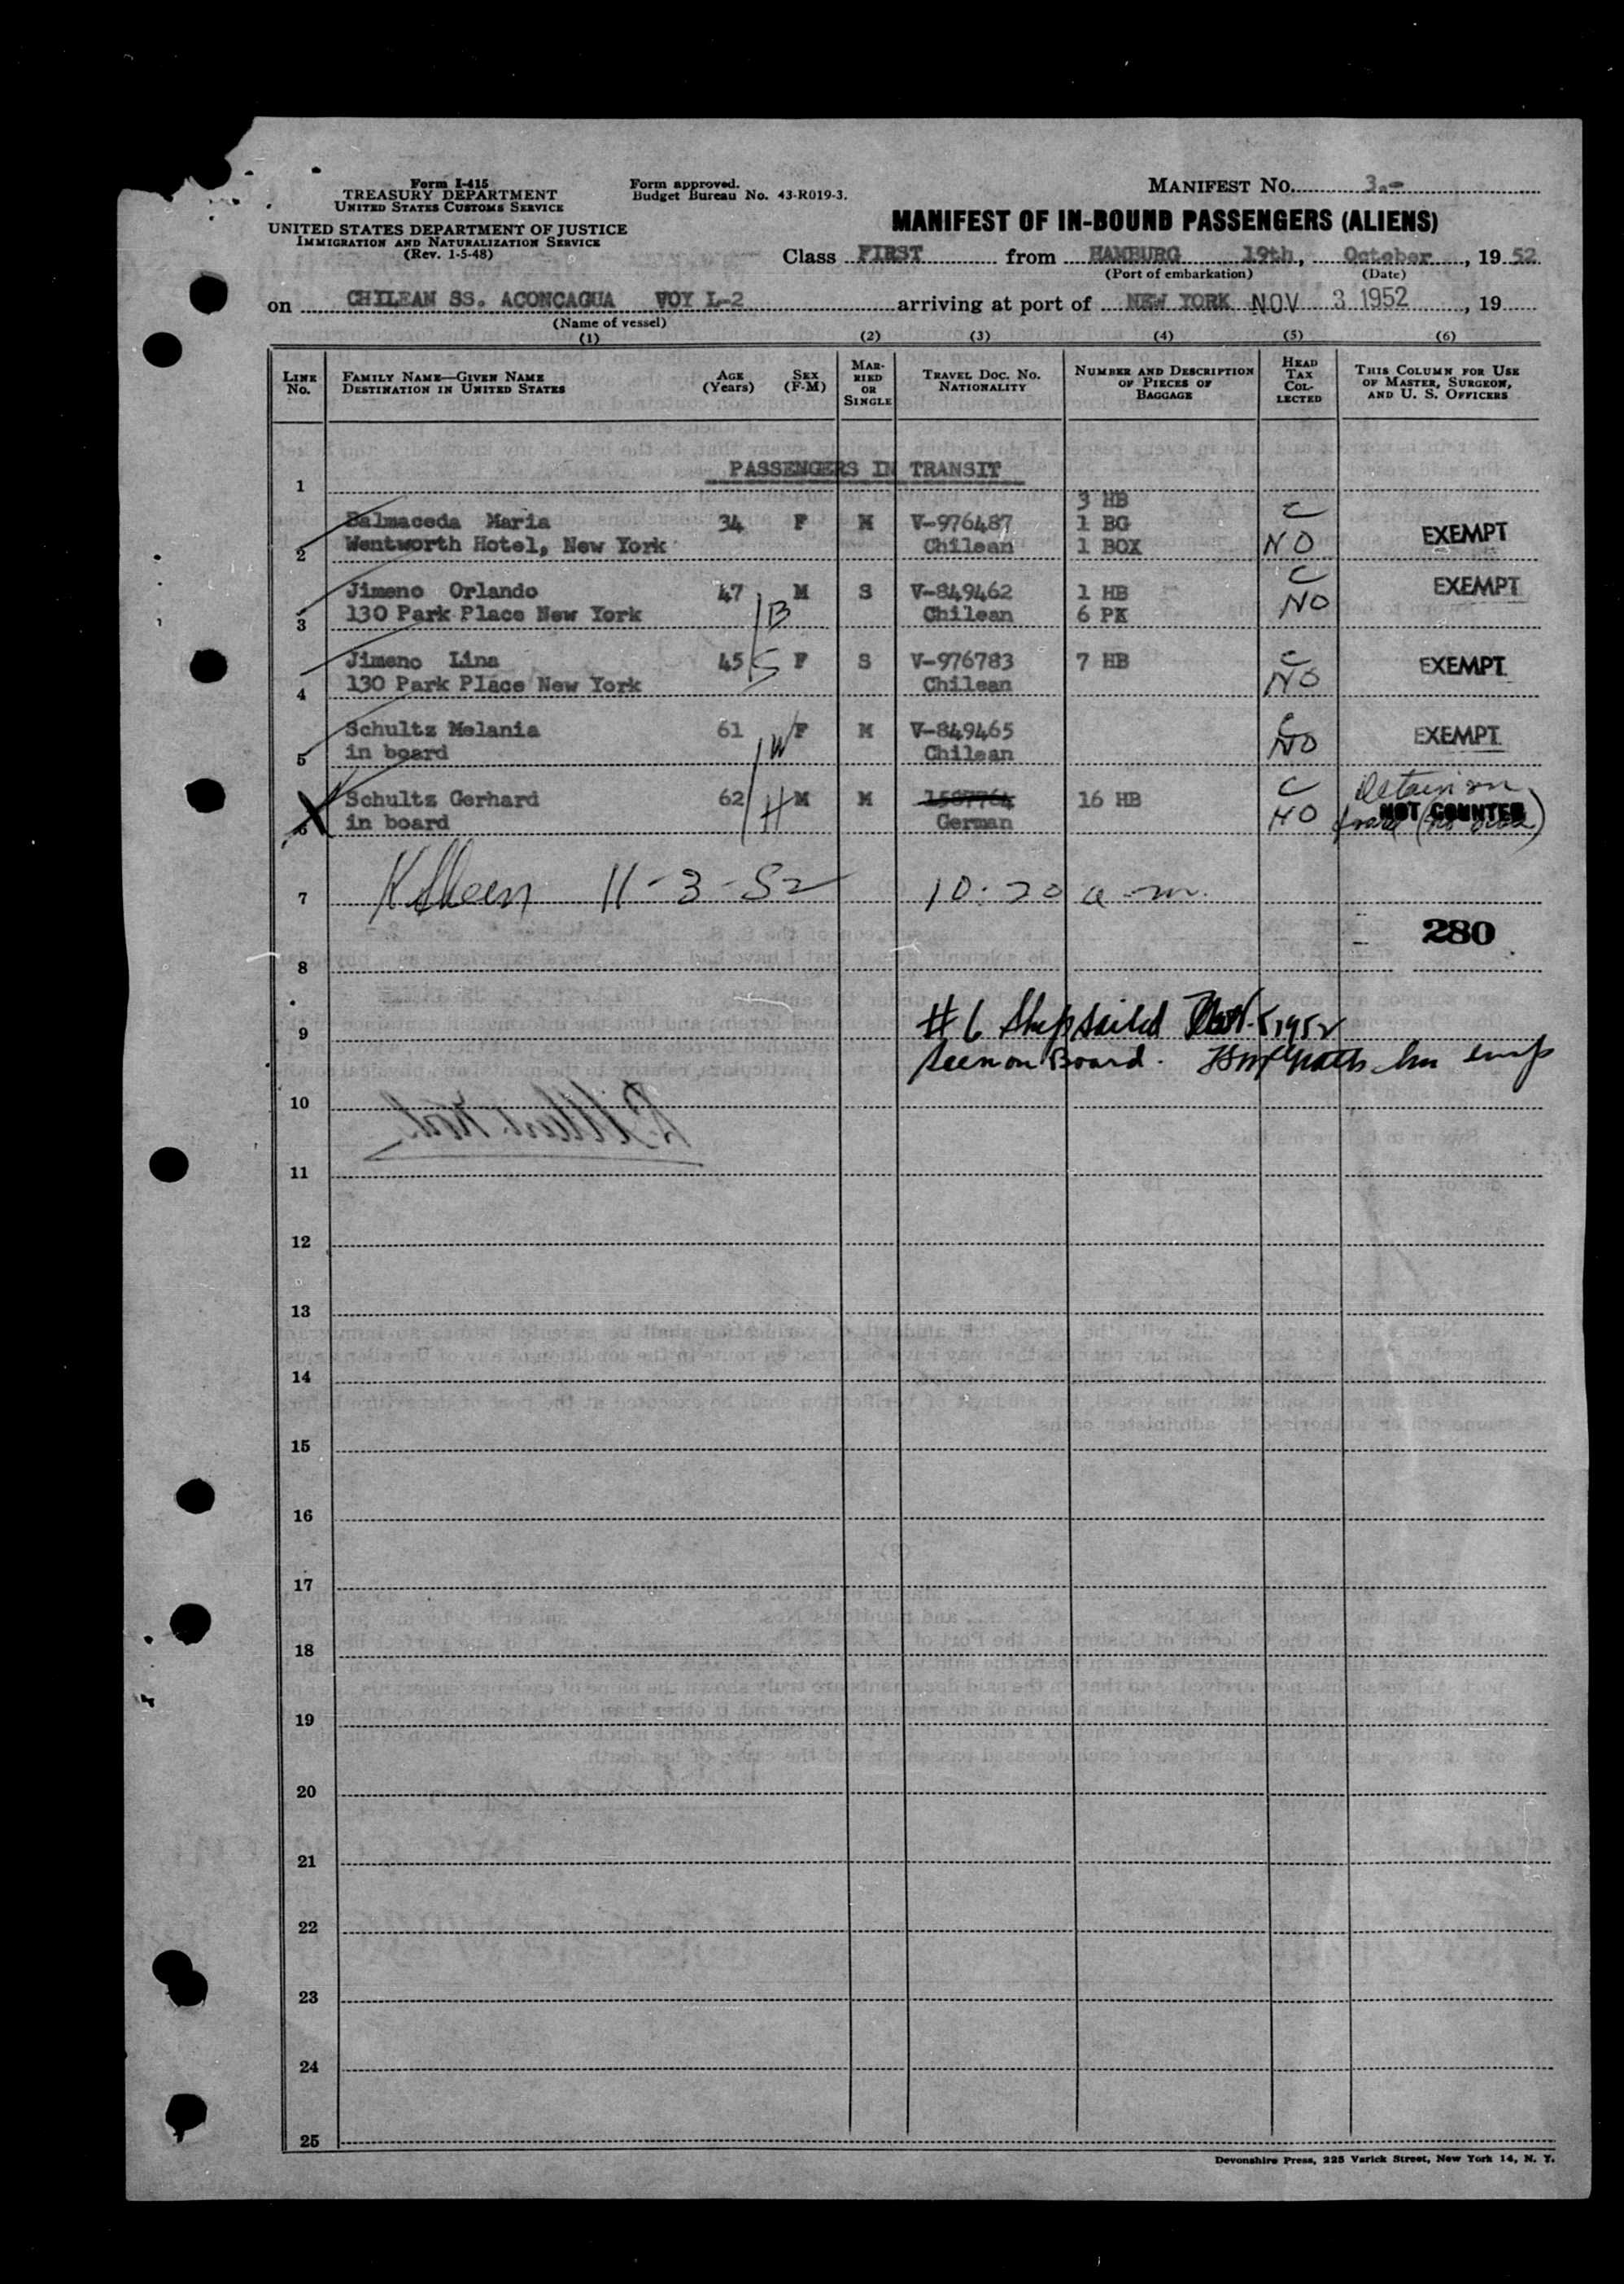 Form I-415
TREASURY DEPARTMENT
UNITED STATES CUSTOMS SERVICE
UNITED STATES DEPARTMENT OF JUSTICE
IMMIGRATION AND NATURALIZATION SERVICE
(Rev. 1-5-48)
Form approved.
Budget Bureau No. 43-R019-3.
MANIFEST NO. 3.-
MANIFEST OF IN-BOUND PASSENGERS (ALIENS)
Class FIRST from HAMBURG 19th, October, 1952
(Port of embarkation) (Date)
on CHILEAN SS. ACONCAGUA VOY L-2 arriving at port of NEW YORK NOV 3 1952, 19
(Name of vessel)
(1) (2) (3) (4) (5) (6)
LINE No. FAMILY NAME—GIVEN NAME DESTINATION IN UNITED STATES AGE (Years) SEX (F-M) MARRIED OR SINGLE TRAVEL DOC. NO. NATIONALITY NUMBER AND DESCRIPTION OF PIECES OF BAGGAGE HEAD TAX COLLECTED THIS COLUMN FOR USE OF MASTER, SURGEON, AND U. S. OFFICERS
PASSENGERS IN TRANSIT
1
3 HB
Balmaceda Maria 34 F M V-976487 1 BG C EXEMPT
2 Wentworth Hotel, New York Chilean 1 BOX NO
Jimeno Orlando 47 M S V-849462 1 HB C EXEMPT
3 130 Park Place New York B Chilean 6 PK NO
Jimeno Lina 45 S F S V-976783 7 HB C EXEMPT
4 130 Park Place New York Chilean NO
Schultz Melania 61 F M V-849465 C EXEMPT
5 in board W Chilean NO
Schultz Gerhard 62 H M M 1587764 16 HB C Detain on
6 in board German NO NOT COUNTED
7 11-3-52 10:20 a.m.
280
8
9 #6 Ship sailed Nov. 5 1952
Seen on Board.
10
11
12
13
14
15
16
17
18
19
20
21
22
23
24
25
Devonshire Press, 225 Varick Street, New York 14, N. Y.